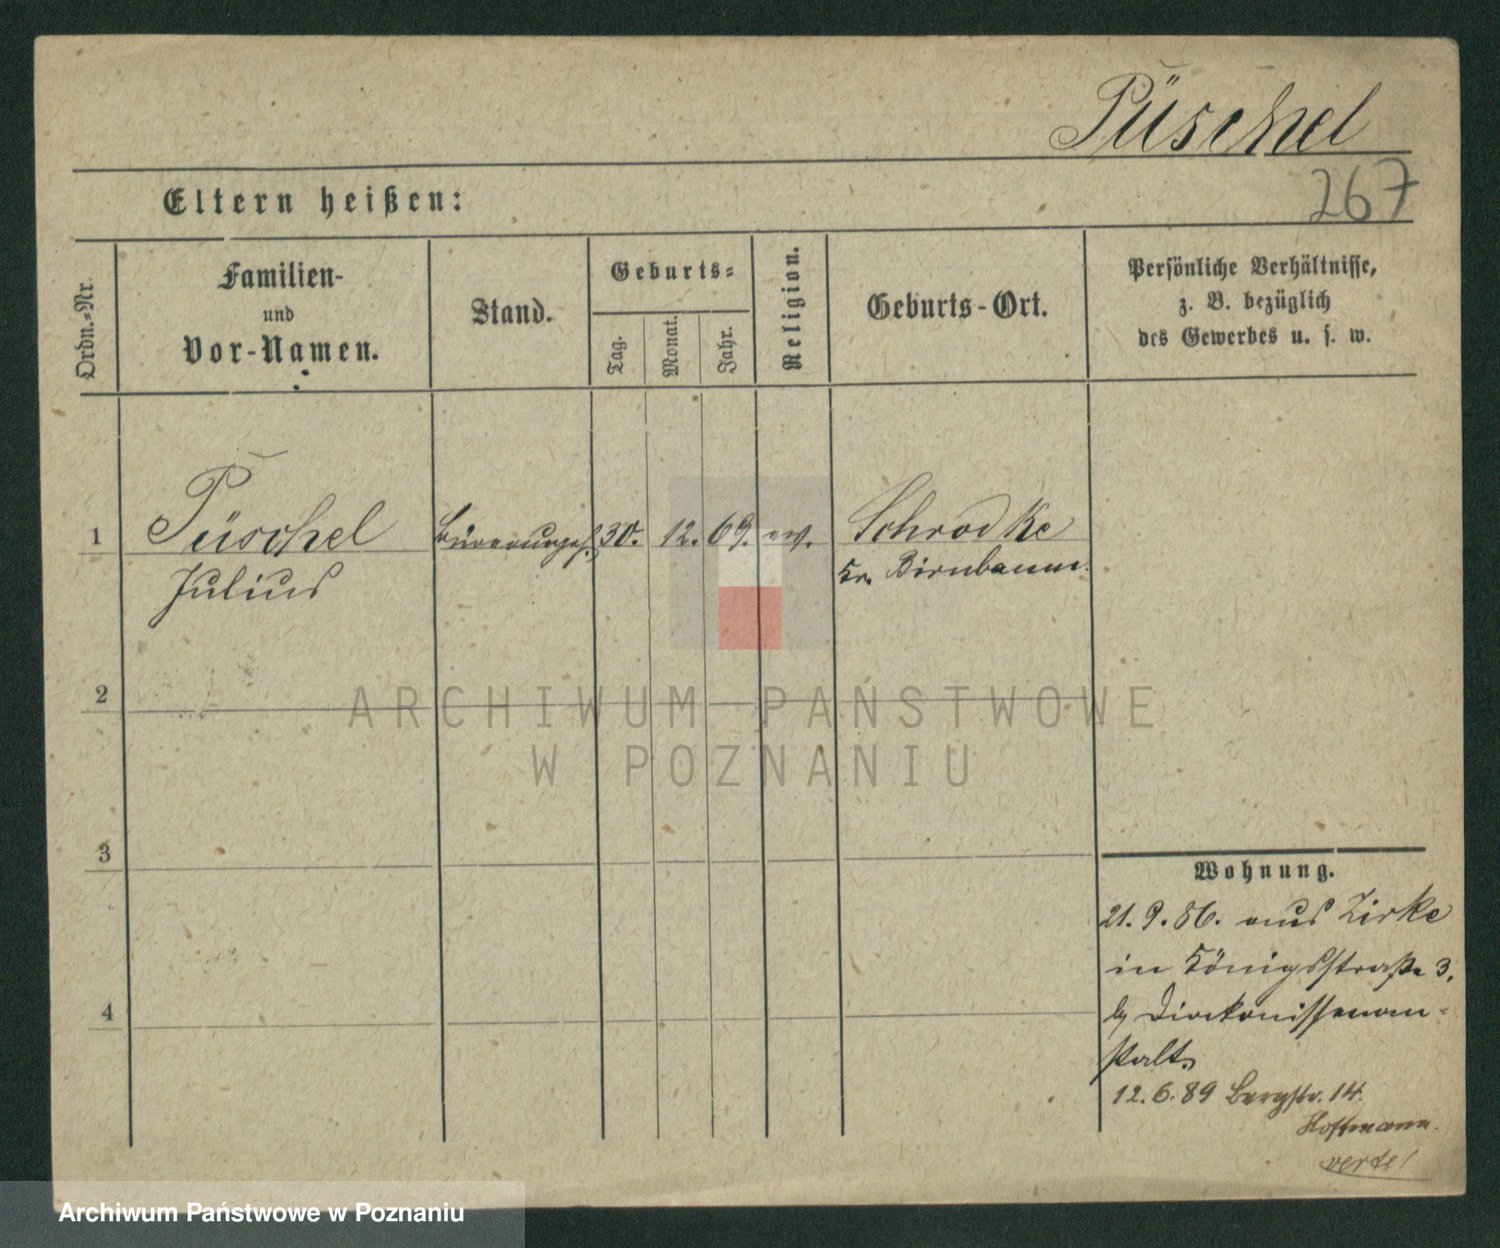 Püschel
267
Eltern heißen:
Ordn.-Nr.
Familien-
und
Vor-Namen.
Stand.
Geburts-
Tag.
Monat.
Jahr.
Religion.
Geburts-Ort.
Persönliche Verhältnisse,
z. B. bezüglich
des Gewerbes u. s. w.
1
Püschel
Julius
30. 12. 69. ev.
Schrodke
Kr. Birnbaum.
2
3
4
Wohnung.
21.9.86. aus Zirke
in Königsstraße 3.
b/ Diakonissenan-
stalt.
12.6.89 Bergstr. 14.
Hoffmann.
verte!
ARCHIWUM PAŃSTWOWE
W POZNANIU
Archiwum Państwowe w Poznaniu